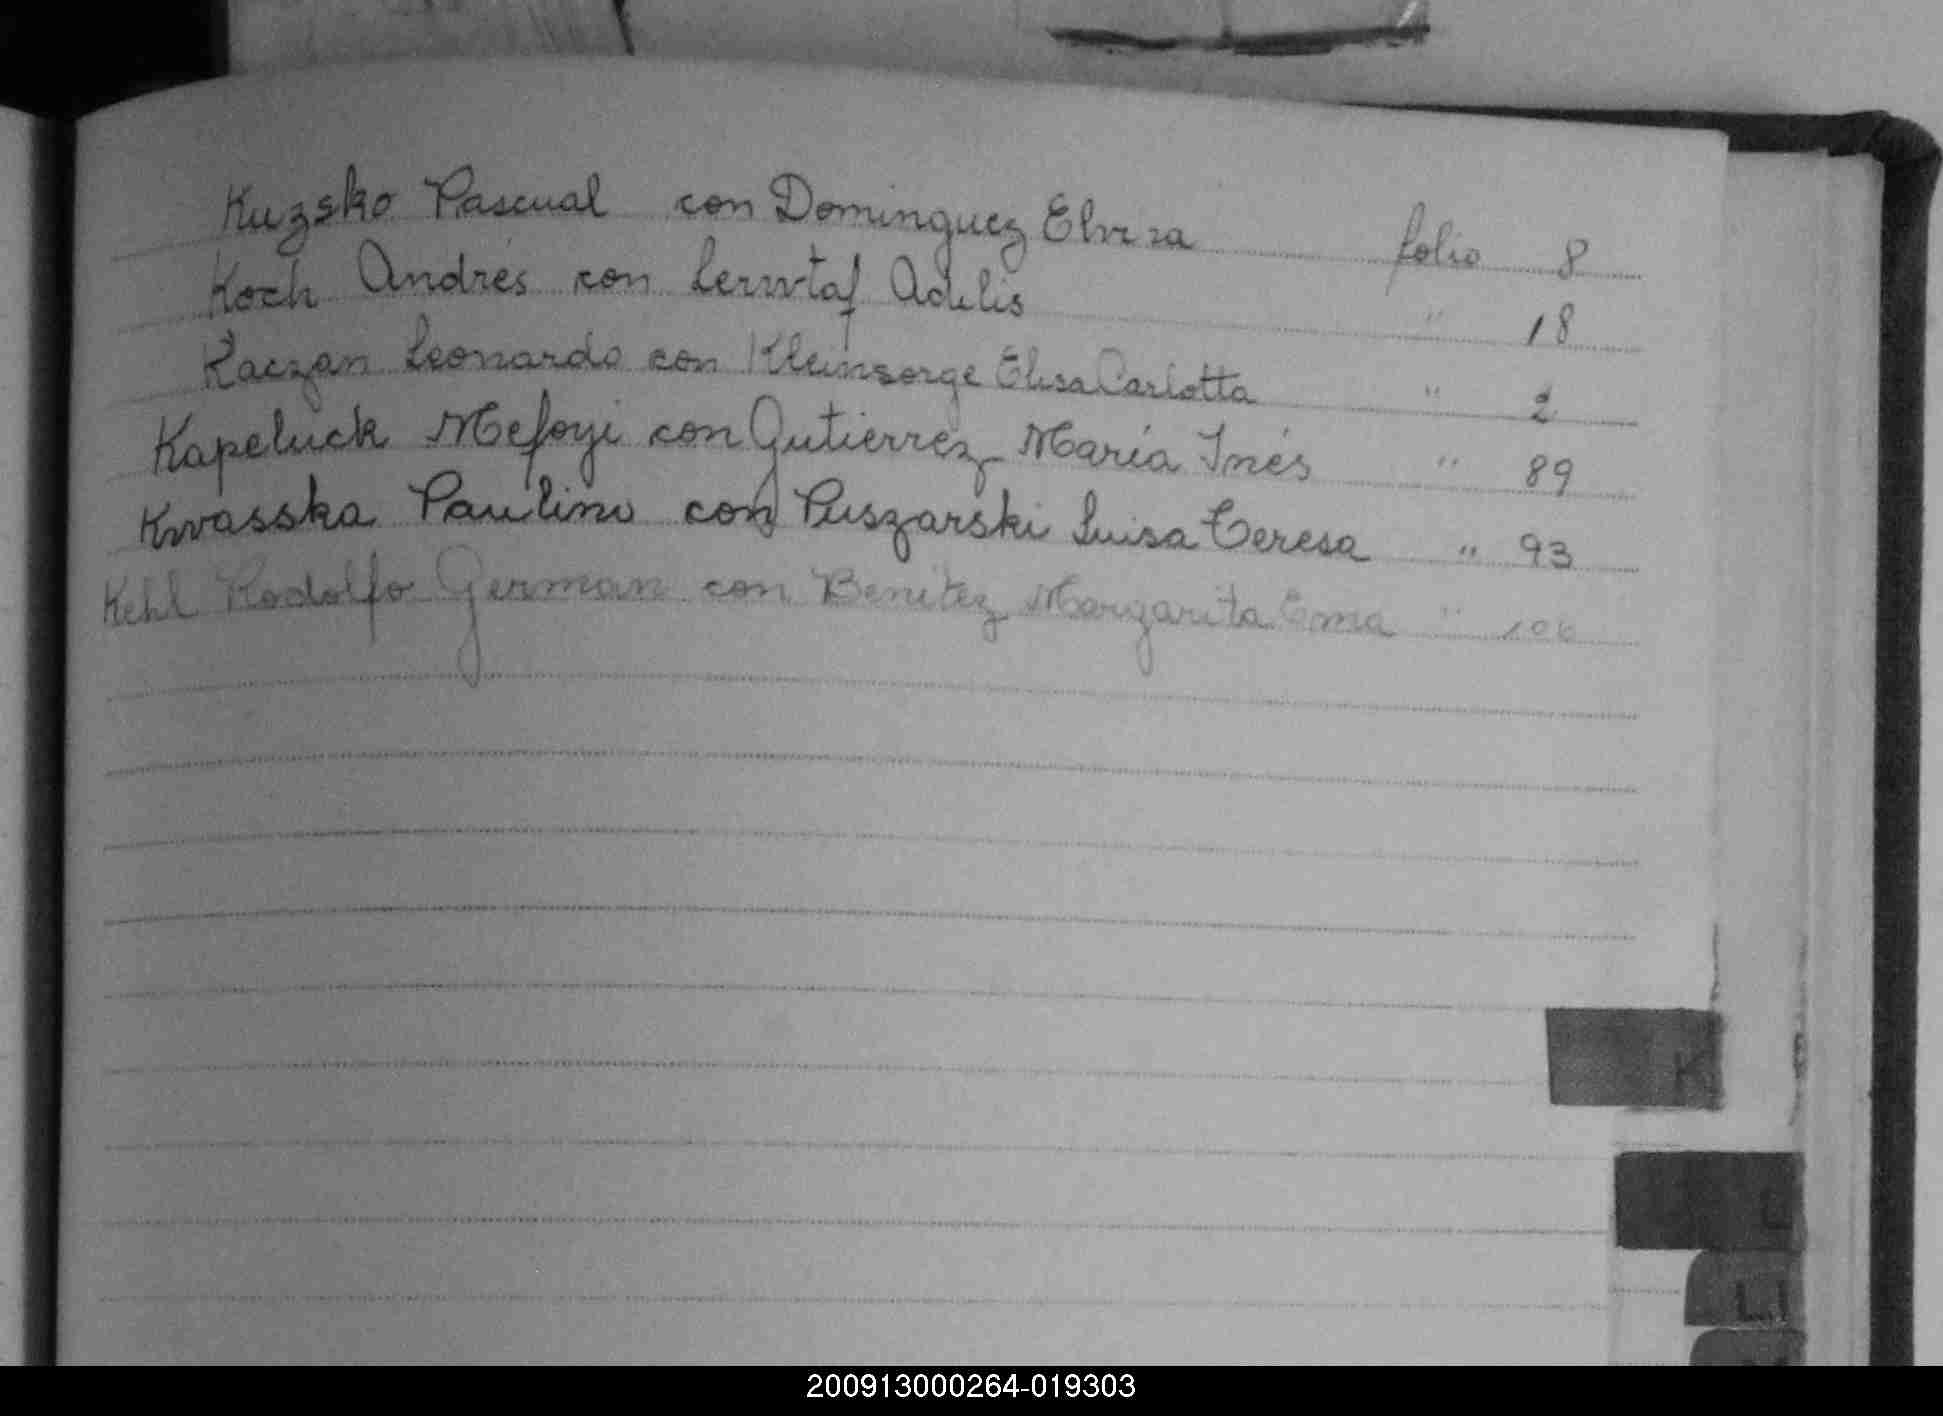 Kuzsko Pascual con Dominguez Elvira folio 8
Koch Andrés con Adelis " 18
Kaczan Leonardo con Kleinsorge Elisa Carlotta " 2
Kapeluck Mefoyi con Gutierrez María Inés " 89
Kwasska Paulino con Puszarski Luisa Teresa " 93
Kehl Rodolfo German con Benitez Margarita Ema " 106
K
L
LL
200913000264-019303